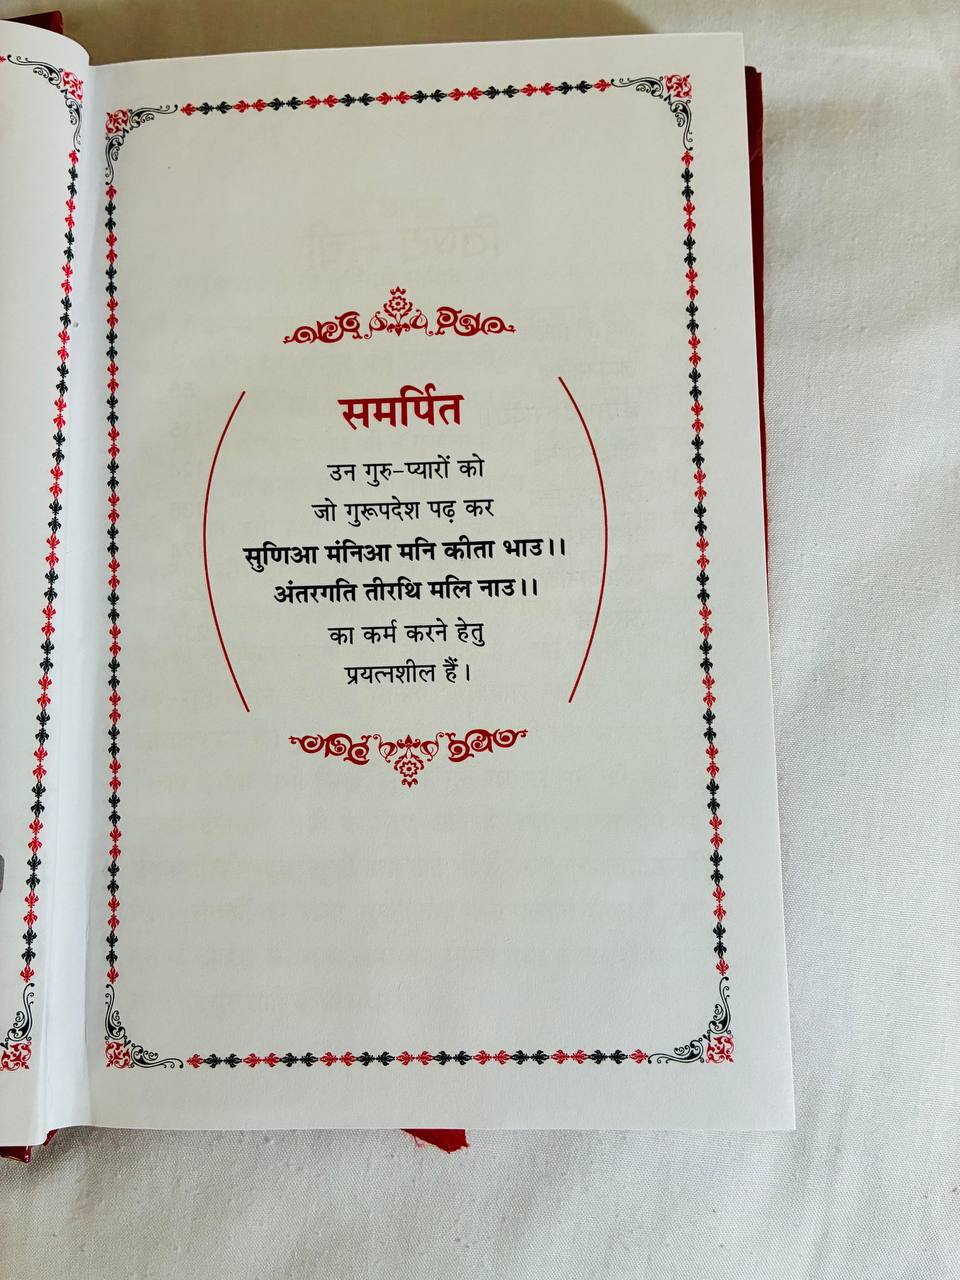 समर्पित
उन गुरु-प्यारों को
जो गुरूपदेश पढ़ कर
सुणिआ मंनिआ मनि कीता भाउ।।
अंतरगति तीरथि मलि नाउ।।
का कर्म करने हेतु
प्रयत्नशील हैं।